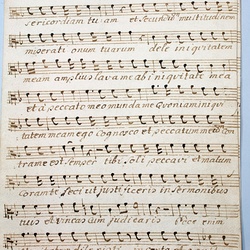 sericordiam tuam et secundum multitudinem
miserati onum tuarum dele iniquitatem
meam amplius lava me ab iniquitate mea
et a peccato meo munda me Quoniam iniqui
tatem meam ego cognosco et peccatum meum con
tra me est semper tibi soli peccavi et malum
coram te feci ut justificeris in sermonibus
tuis et vincas cum judicaris Ecce enim